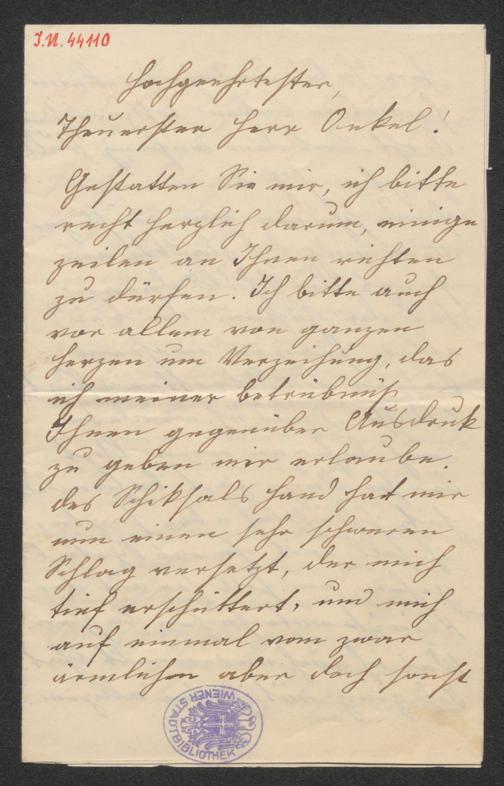 I.N. 44110
Hochgeehrtester,
Theuerster Herr Onkel!
Gestatten Sie mir, ich bitte
recht herzlich darum, einige
zeilen an Ihnen richten
zu dürfen. Ich bitte auch
vor allem von ganzen
herzen um Verzeihung, das
ich meiner betrübniß
Ihnen gegenüber Ausdruk
zu geben mir erlaube.
des Schiksals hand hat mir
nun einen sehr schweren
Schlag versetzt, der mich
tief erschüttert, und mich
auf einmal vom zwar
ärmlichen aber doch sonst
WIENER STADTBIBLIOTHEK